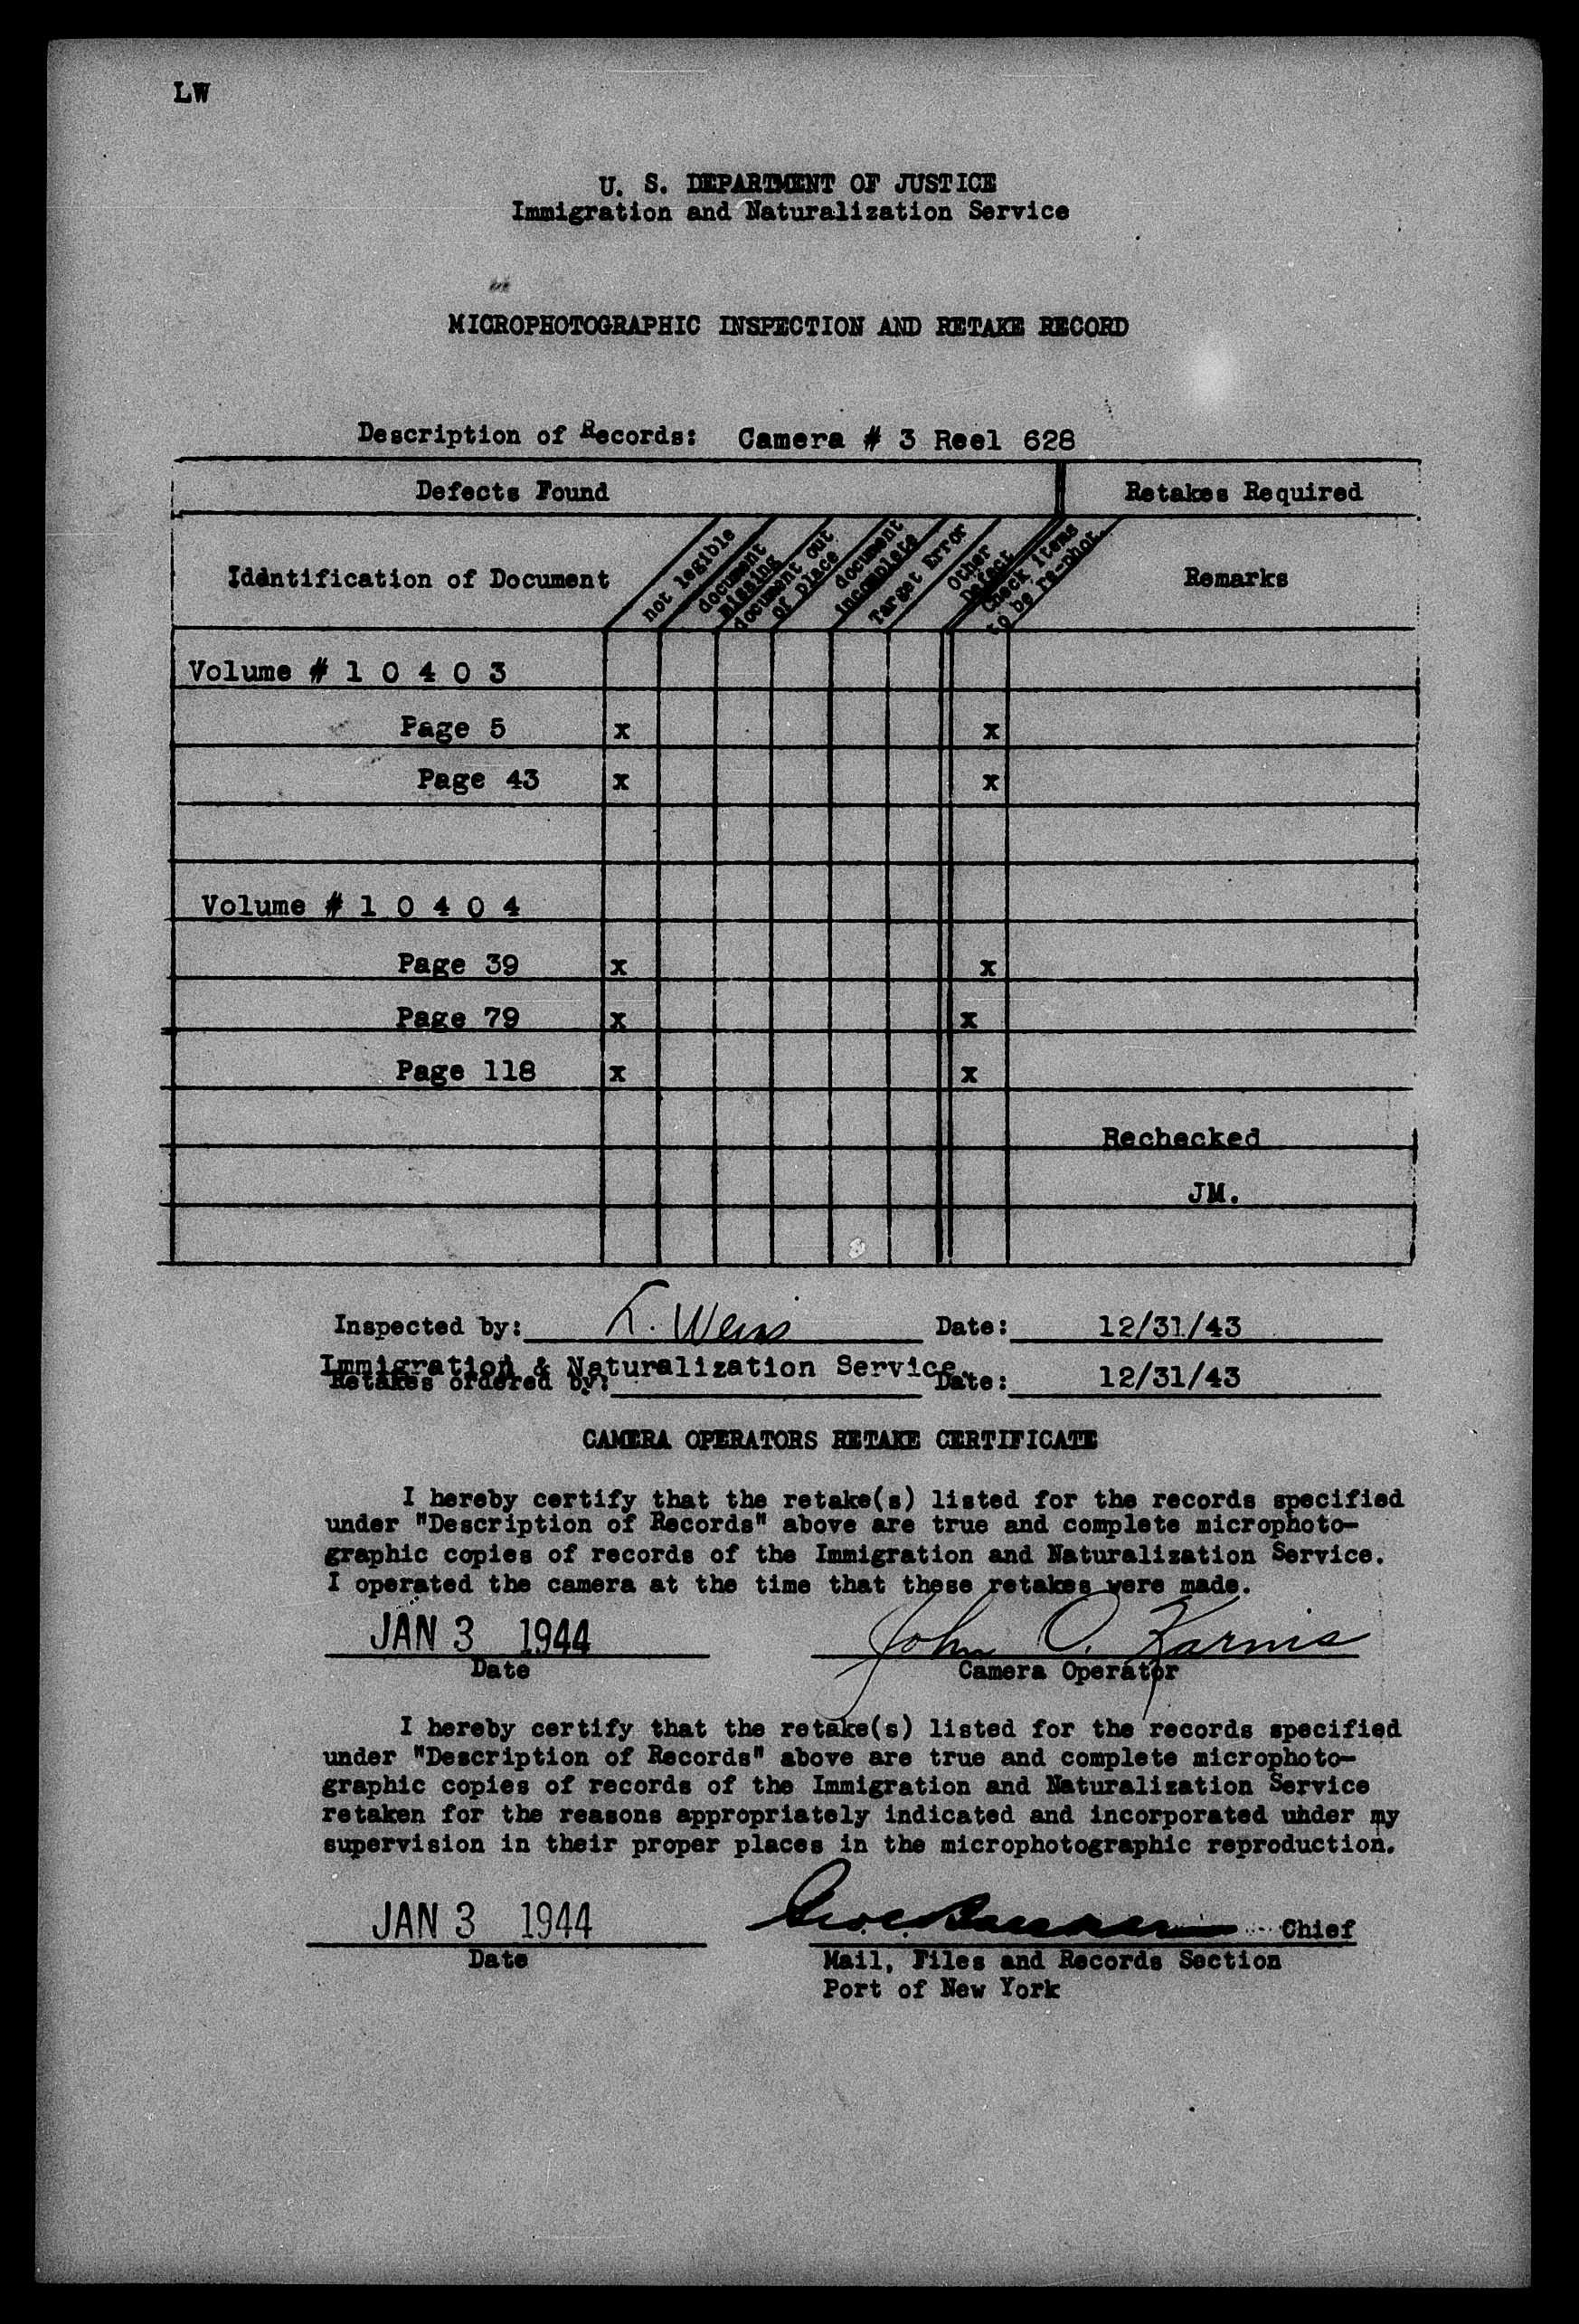 LW
U. S. DEPARTMENT OF JUSTICE
Immigration and Naturalization Service
MICROPHOTOGRAPHIC INSPECTION AND RETAKE RECORD
Description of Records: Camera # 3 Reel 628
Defects Found Retakes Required
Identification of Document
not legible
document
missing
document out
of place
document
incomplete
Target Error
Other
Defect
Check items
to be re-phot.
Remarks
Volume # 1 0 4 0 3
Page 5 x x
Page 43 x x
Volume # 1 0 4 0 4
Page 39 x x
Page 79 x x
Page 118 x x
Rechecked
JM.
Inspected by: L. Weiss Date: 12/31/43
Immigration & Naturalization Service.
Retakes ordered by: Date: 12/31/43
CAMERA OPERATORS RETAKE CERTIFICATE
I hereby certify that the retake(s) listed for the records specified
under "Description of Records" above are true and complete microphoto-
graphic copies of records of the Immigration and Naturalization Service.
I operated the camera at the time that these retakes were made.
JAN 3 1944 John O. Karnis
Date Camera Operator
I hereby certify that the retake(s) listed for the records specified
under "Description of Records" above are true and complete microphoto-
graphic copies of records of the Immigration and Naturalization Service
retaken for the reasons appropriately indicated and incorporated uhder my
supervision in their proper places in the microphotographic reproduction.
JAN 3 1944 Chief
Date Mail, Files and Records Section
Port of New York